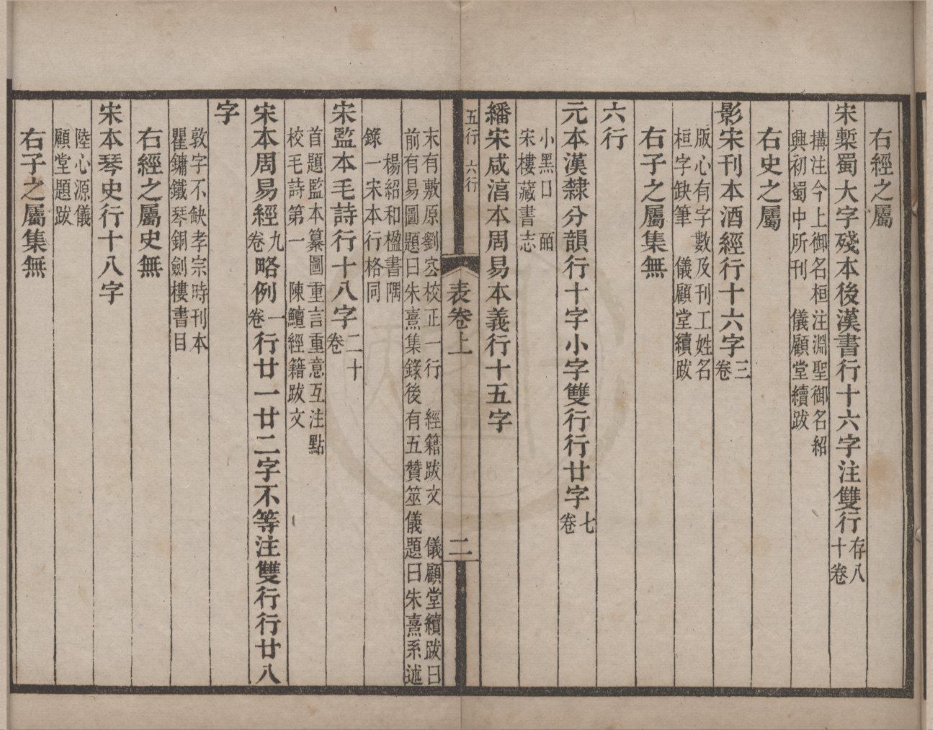 右經之屬
宋槧蜀大字殘本後漢書行十六字注雙行存八十卷
搆注今上御名桓注淵聖御名紹
興初蜀中所刊 儀顧堂續跋
右史之屬
影宋刊本酒經行十六字三卷
版心有字數及刊工姓名
桓字缺筆 儀顧堂續跋
右子之屬集無
六行
元本漢隸分韻行十字小字雙行行廿字七卷
小黑口 皕
宋樓藏書志
繙宋咸淳本周易本義行十五字
五行 六行
表卷上
二
末有敷原劉宏校正一行 經籍跋文 儀顧堂續跋曰
前有易圖題曰朱熹集錄後有五贊筮儀題曰朱熹系述
楊紹和楹書隅
錄一宋本行格同
宋監本毛詩行十八字二十卷
首題監本纂圖重言重意互注點
校毛詩第一 陳鱣經籍跋文
宋本周易經九卷略例一卷行廿一廿二字不等注雙行行廿八
字
敦字不缺孝宗時刊本
瞿鏞鐵琴銅劍樓書目
右經之屬史無
宋本琴史行十八字
陸心源儀
顧堂題跋
右子之屬集無